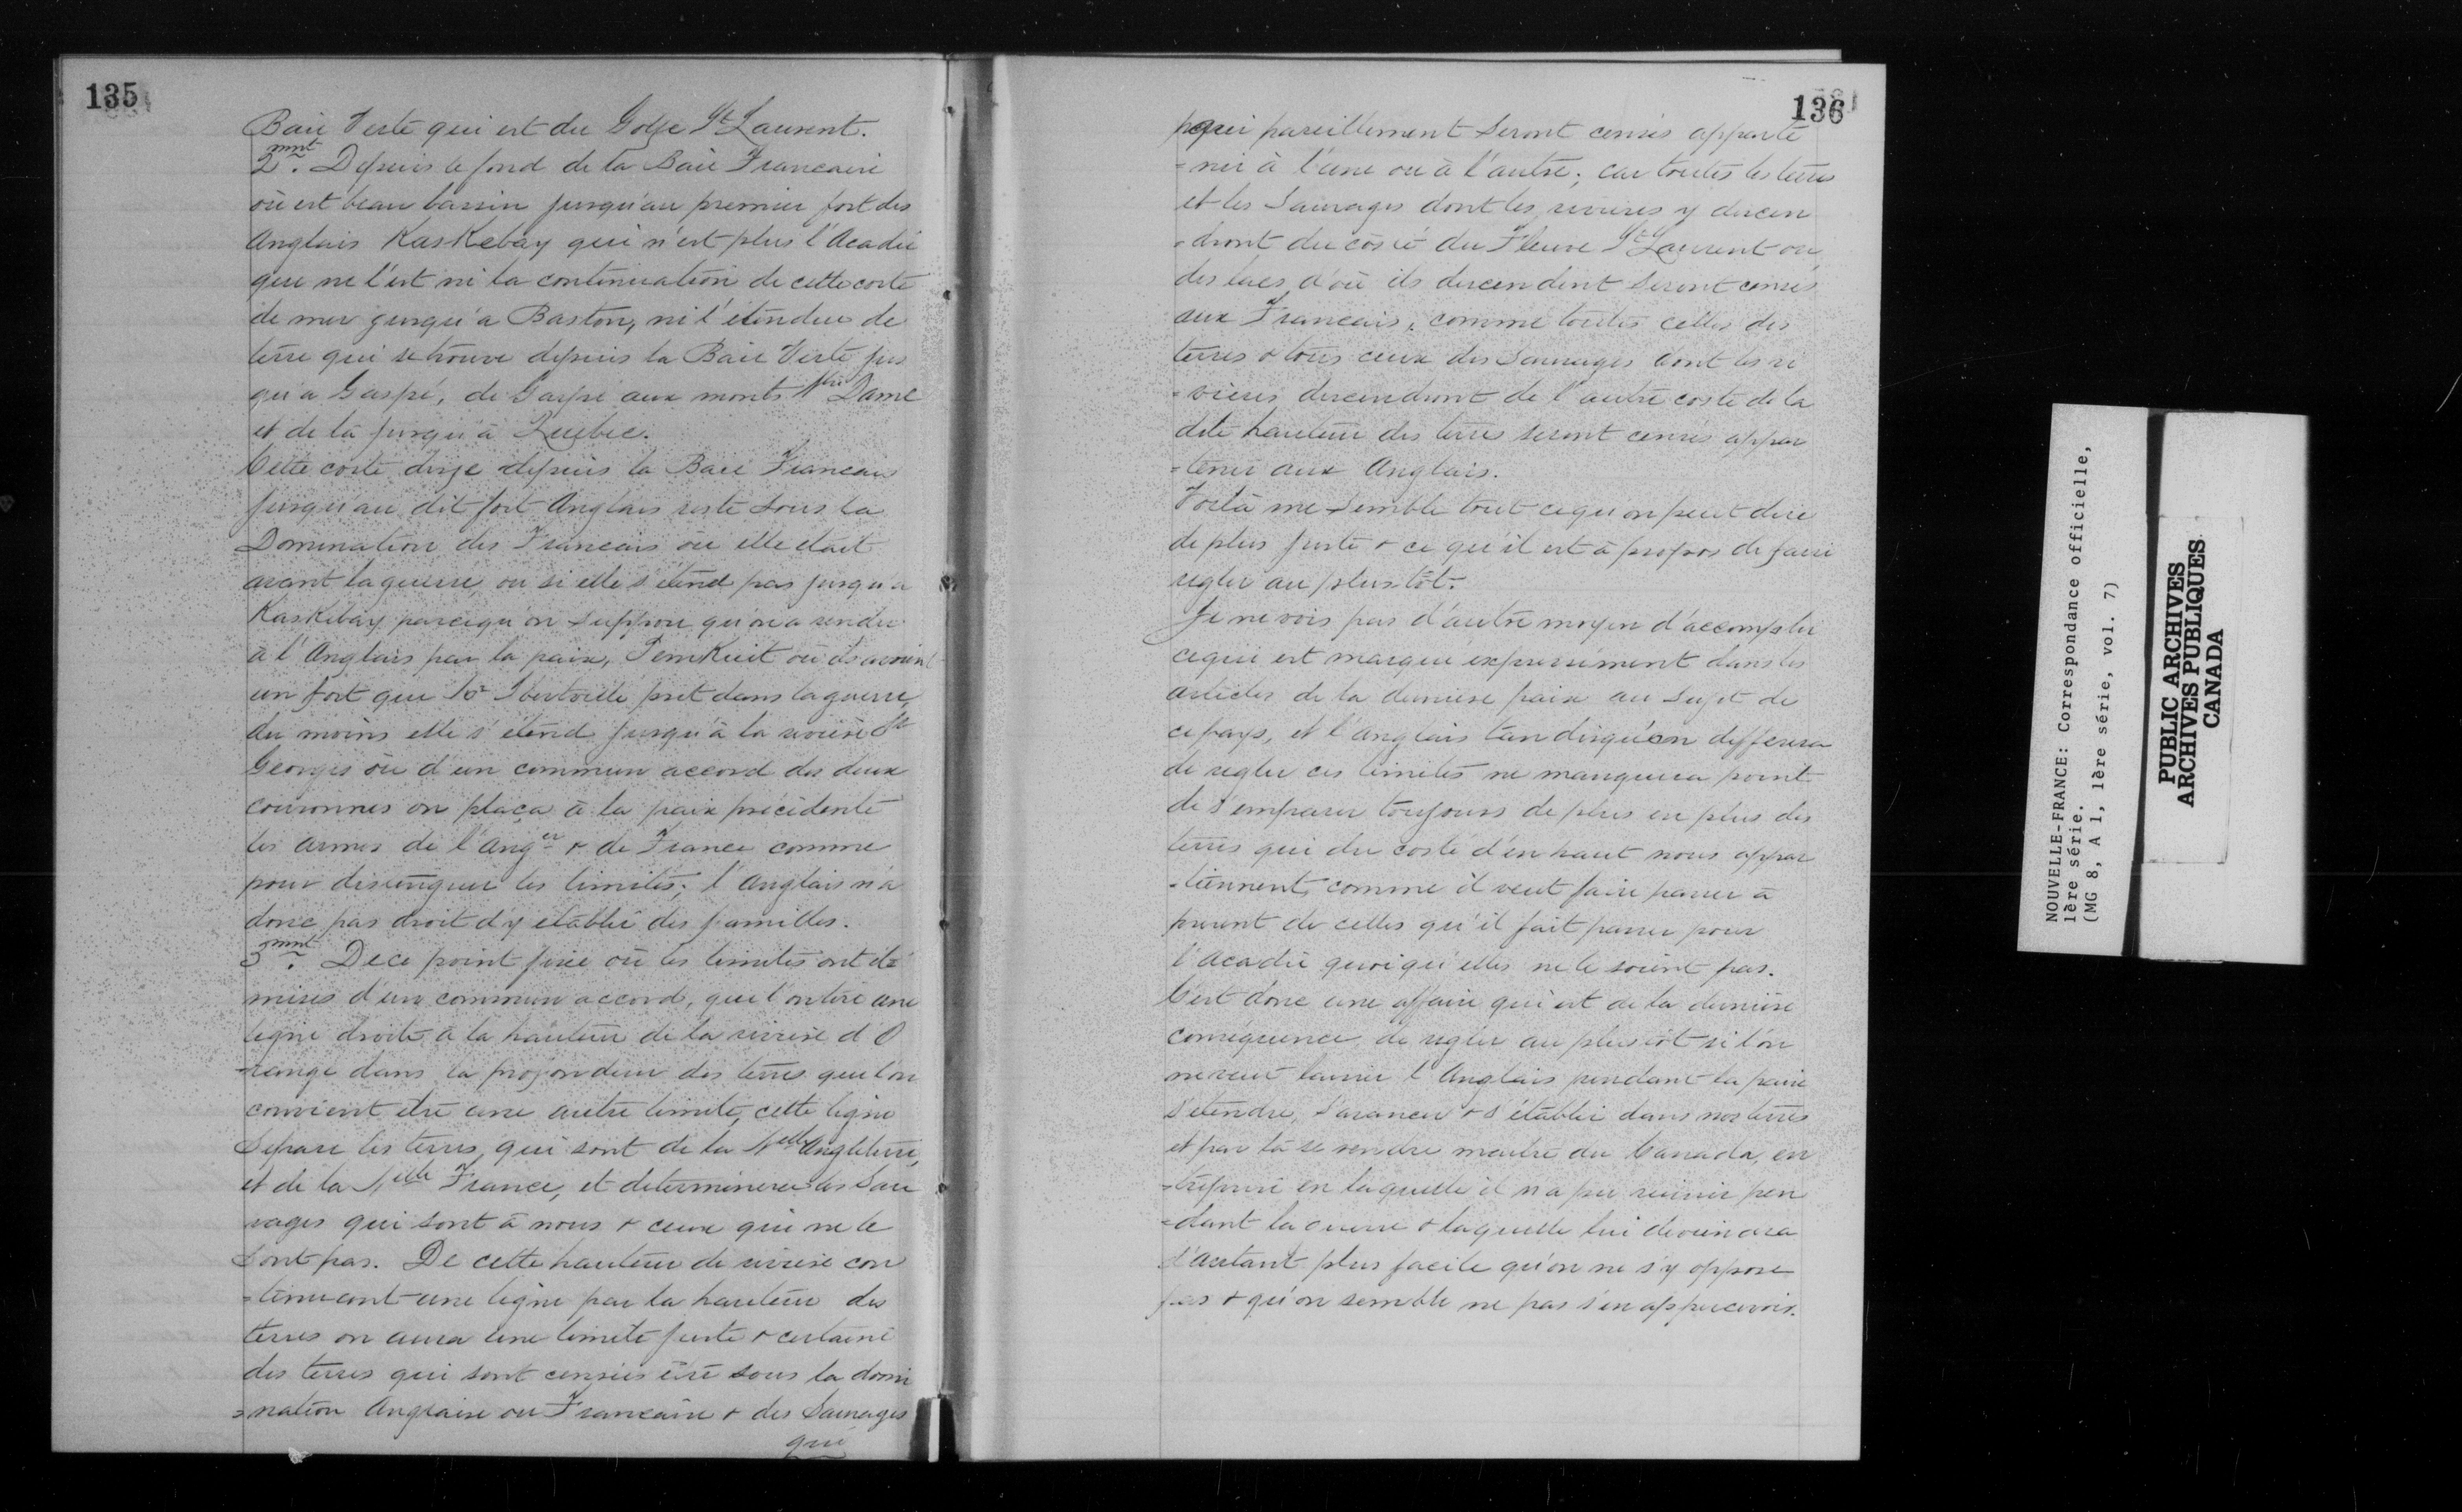 135
Baie Verte qui est du Golfe St Laurent.
2mnt. Depuis le fond de la Baie Francaise
où est beau bassin jusqu'au premier fort des
Anglais Kaskebay qui n'est plus l'Acadie
que ne l'est ni la continuation de cette coste
de mer jusqu'a Baston, ni l'étendue de
terre qui se trouve depuis la Baie Verte jus
qu'a Gaspé, de Gaspé aux monts Ntre Dame
et de là jusqu'à Quebec.
Cette coste disje depuis la Baie Francaise
jusqu'au dit fort Anglais reste sous la
Domination des Francais où elle etait
avant la guerre, ou si elle s'étend pas jusqu'a
Kaskebay parcequ'on suppose qu'on a rendu
à l'Anglais par la paix, Pemkuit où ils avoient
un fort que Mr Iberville prit dans la guerre,
du moins elle s'étend jusqu'à la rivière St
Georges où d'un commun accord des deux
couronnes on plaça à la paix précédente
les armes de l'Anger & de France comme
pour distinguer les limites; l'Anglais n'a
donc pas droit d'y etablir des familles.
3mnt. De ce point fixe où les limites ont été
mises d'un commun accord, que l'on tire une
ligne droite à la hauteur de la riviere d'O
-range dans la profondeur des terres que l'on
convient être une autre limite, cette ligne
separe les terres qui sont de la Nelle Angleterre,
et de la Nelle France, et determinera les Sau
vages qui sont à nous & ceux qui ne le
sont pas. De cette hauteur de riviere con
-tinuant une ligne par la hauteur des
terres on aura une limite juste & certaine
des terres qui sont censées être sous la domi
-nation Anglaise ou Francaise & des Sauvages
qui
136
qui pareillement seront censés apparte
-nir à l'une ou à l'autre; car toutes les terres
et les Sauvages dont les rivieres y descen
-dront du costé du Fleuve St Laurent ou
des lacs d'où ils descendent seront censés
aux Francais, comme toutes celles des
terres & tous ceux des Sauvages dont les ri
-vieres descendront de l'autre costé de la
dite hauteur des terres seront censés appar
-tenir aux Anglais.
Voilà me semble tout ce qu'on peut dire
de plus juste & ce qu'il est à propos de faire
regler au plus tôt.
Je ne vois pas d'autre moyen d'accomplir
ce qui est marqué expressément dans les
articles de la derniere paix au sujet de
ce pays, et l'Anglais tandisqu'on differera
de regler ces limites ne manquera point
de s'emparer toujours de plus en plus des
terres qui du costé d'en haut nous appar
-tiennent, comme il veut faire passer à
present de celles qu'il fait passer pour
l'Acadie quoiqu'elles ne le soient pas.
C'est donc une affaire qui est de la derniere
conséquence de regler au plustôt si l'on
ne veut laisser l'Anglais pendant la paix
s'etendre, s'avancer & s'établir dans nos terres
et par là se rendre maitre du Canada, en
-treprise en laquelle il n'a pu reussir pen
-dant la guerre & laquelle lui deviendra
d'autant plus facile qu'on ne s'y oppose
pas & qu'on semble ne pas s'en appercevoir.
NOUVELLE-FRANCE: Correspondance officielle,
1ère série.
(MG 8, A 1, 1ère série, vol. 7)
PUBLIC ARCHIVES
ARCHIVES PUBLIQUES
CANADA